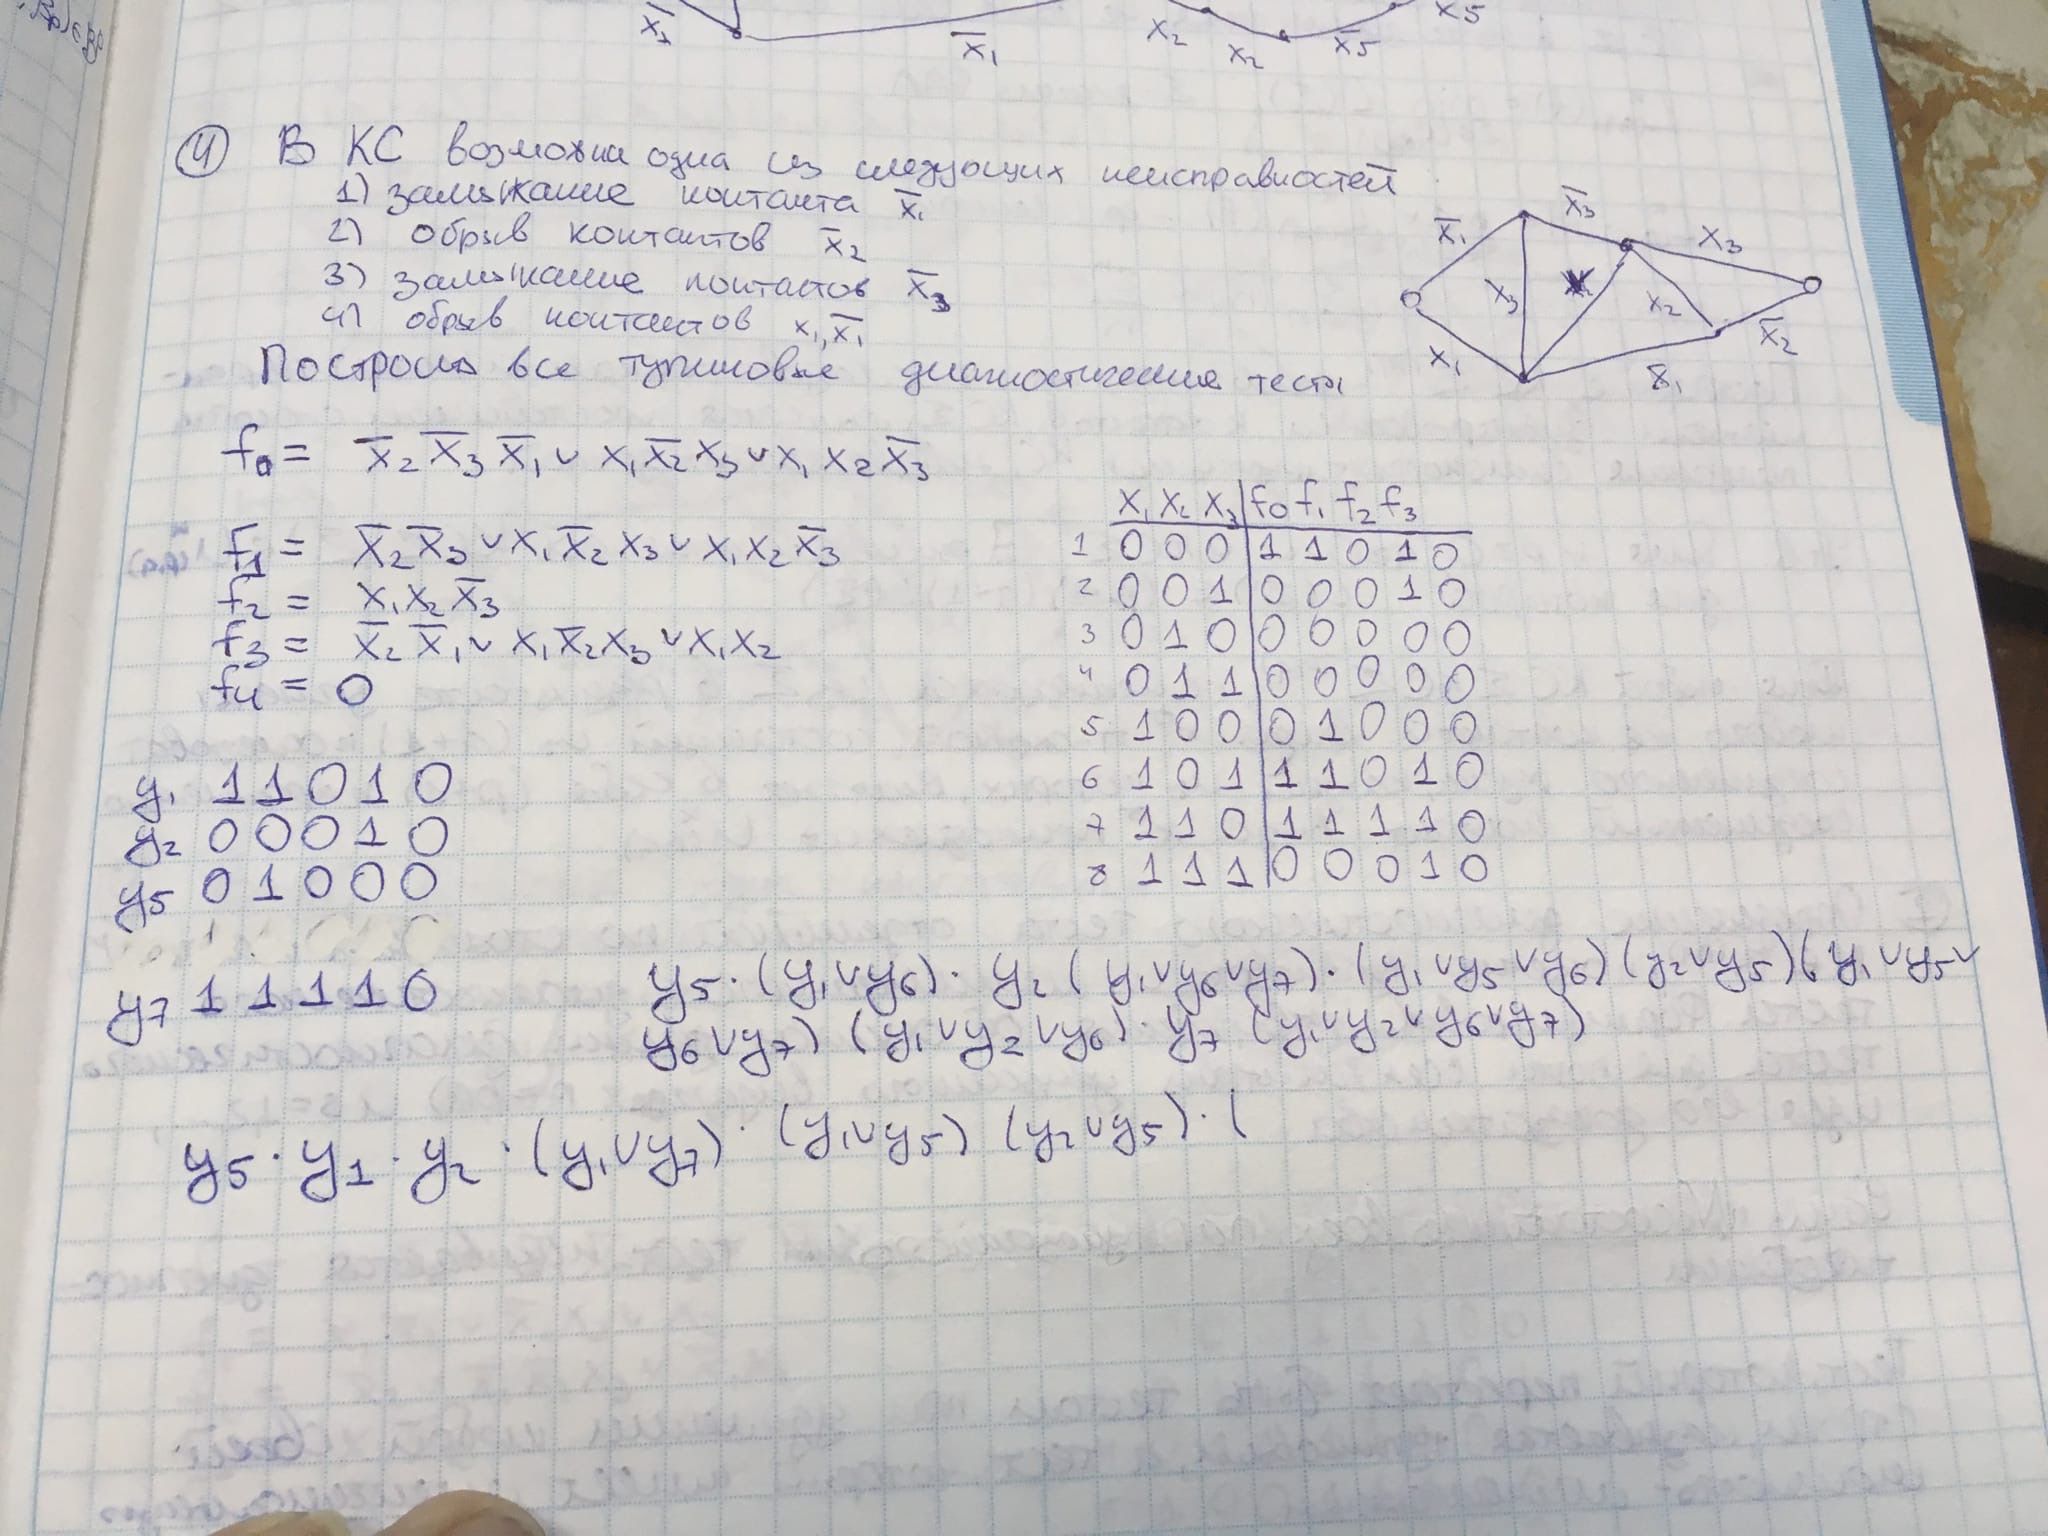 x̅₁ x̅₁ x₂ x₂ x̅₅ x₅
④ В КС возможна одна из следующих неисправностей
1) замыкание контакта x̅₁
2) обрыв контактов x̅₂
3) замыкание контактов x̅₃
4) обрыв контактов x₁, x̅₁
Построить все тупиковые диагностические тесты
x̅₁ x̅₃ x₃
x₃ x₂
x₁ x₁ x̅₂
f₀ = x̅₂ x̅₃ x̅₁ ∨ x₁ x̅₂ x₃ ∨ x₁ x₂ x̅₃
f₁ = x̅₂ x̅₃ ∨ x₁ x̅₂ x₃ ∨ x₁ x₂ x̅₃
f₂ = x₁ x₂ x̅₃
f₃ = x̅₂ x̅₁ ∨ x₁ x̅₂ x₃ ∨ x₁ x₂
f₄ = 0
x₁ x₂ x₃ f₀ f₁ f₂ f₃
1 0 0 0 1 1 0 1 0
2 0 0 1 0 0 0 1 0
3 0 1 0 0 0 0 0 0
4 0 1 1 0 0 0 0 0
5 1 0 0 0 1 0 0 0
6 1 0 1 1 1 0 1 0
7 1 1 0 1 1 1 1 0
8 1 1 1 0 0 0 1 0
y₁ 1 1 0 1 0
y₂ 0 0 0 1 0
y₅ 0 1 0 0 0
y₇ 1 1 1 1 0
y₅ · (y₁∨y₆) · y₂ (y₁∨y₆∨y₇) · (y₁∨y₅∨y₆) (y₂∨y₅) (y₁∨y₅∨
y₆∨y₇) (y₁∨y₂∨y₆) · y₇ (y₁∨y₂∨y₆∨y₇)
y₅ · y₁ · y₂ · (y₁∨y₇) · (y₁∨y₅) (y₂∨y₅) · (